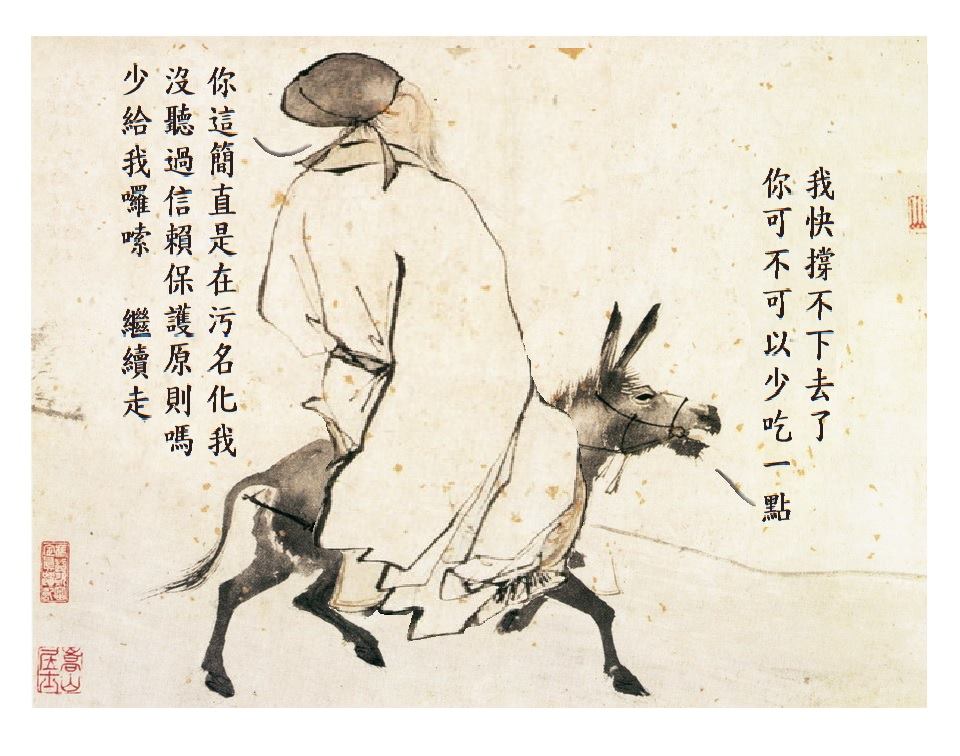 我快撐不下去了
你可不可以少吃一點
你這簡直是在污名化我
沒聽過信賴保護原則嗎
少給我囉嗦　繼續走